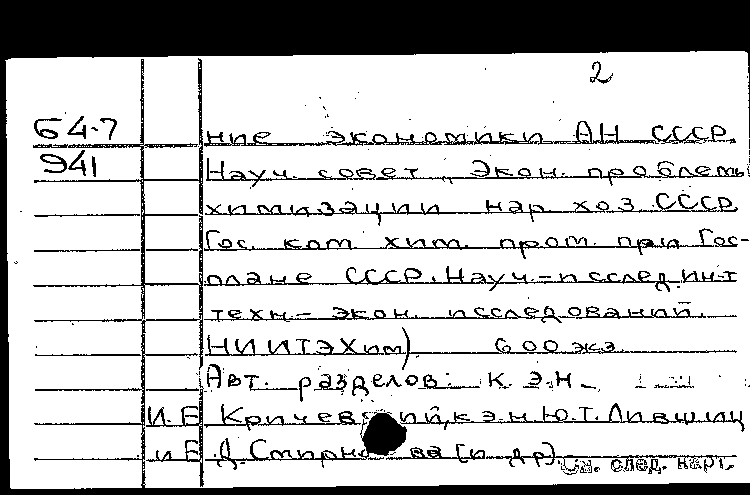 2
64-7 ние экономики АН СССР.
941 Науч. совет „Экон. проблемы
химизации нар хоз. СССР.
Гос. ком хим. пром. при Гос-
плане СССР. Науч.-исслед. ин-т
техн.- экон. исследований.
НИИТЭХим). 600 экз.
Авт. разделов: к.э.н.
И.Е. Кричевский, к.э.н. Ю.Т. Лившиц
и Е.Д. Смирнова [и др].
См. след. карт.